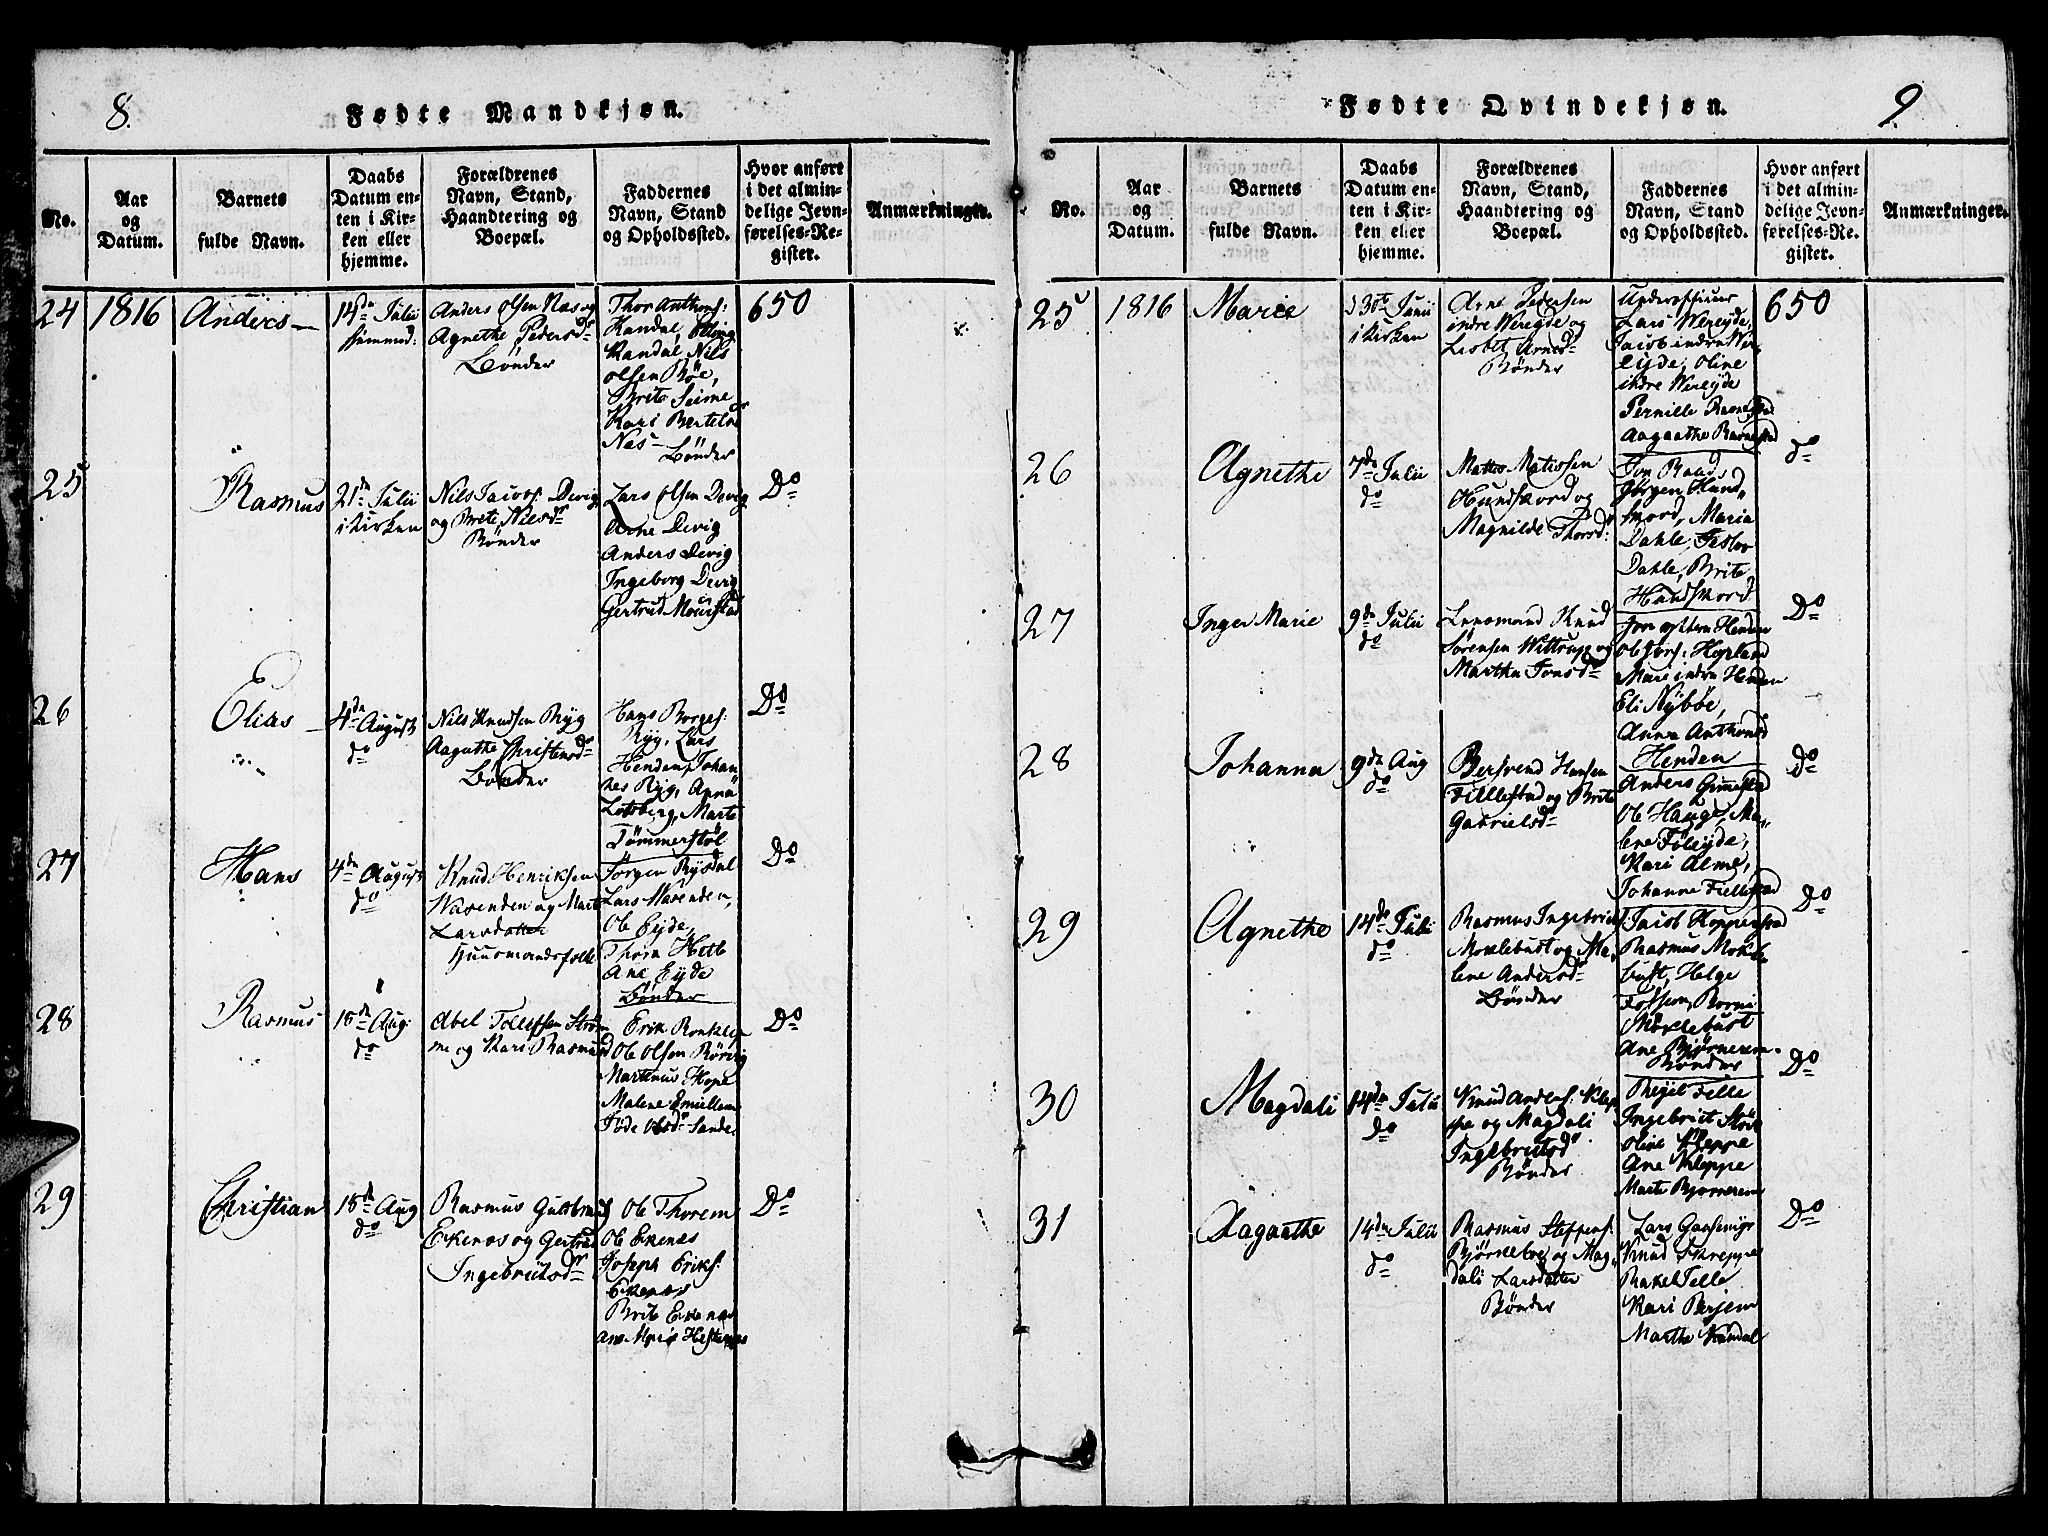 8.
Fødte Mandkjøn.
No.
Aar
og
Datum.
Barnets
fulde Navn.
Daabs
Datum en-
ten i Kir-
ken eller
hjemme.
Forældrenes
Navn, Stand,
Haandtering og
Boepæl.
Faddernes
Navn, Stand
og Opholdssted.
Hvor anført
i det almin-
delige Jevn-
førelses-Re-
gister.
Anmærkninger.
24
1816
Anders
14de Julii
hjemmed:
Anders Olsen Næs og
Agnethe Pedersdr
Bønder
Thor Anthons:
Kandal,
Kandal, Nils
Olsen Bøe,
Brite Seime
Kari Bertelsdr
Næs
Bønder
650
25
Rasmus
21de Julii
i Kirken
Nils Jacobs: Devig
og Brite Nilsdr
Bønder
Lars Olsen Devig
Arne Devig
Anders Devig
Ingeborg Devig
Gertrud
Do
26
Elias
4de August
do
Nils Knudsen Ryg
Aagathe Christensdr
Bønder
Hans Borges:
Ryg, Lars
Henden, Johan
nes Ryg, Anna
Lotsberg, Marte
Tømmerstøl
Do
27
Hans
4de August
do
Knud Henriksen
Wasenden og Marte
Larsdatter
Huusmandsfolk
Jørgen Rysdal
Lars Wasenden,
Ob Eyde,
Ane Eyde
Bønder
Do
28
Rasmus
18de Aug:
do
Abel Tollefsen Strøm
me og Kari Rasmusd
Erik
Ob Olsen Rørvig
Martinus Hope
Malene
Obsdr Sande
Do
29
Christian
18de Aug
do
Rasmus Gudbrand
Eckenæs og Gertrud
Ingebritsdr
Ob Thorem
Ob Ekenæs
Joseph Eriks:
Ekenæs
Brite Eckenæs
Ane Marie Hestenæs
Do
9
Fødte Qvindekjøn.
No.
Aar
og
Datum.
Barnets
fulde Navn.
Daabs
Datum en-
ten i Kir-
ken eller
hjemme.
Forældrenes
Navn, Stand,
Haandtering og
Boepæl.
Faddernes
Navn, Stand
og Opholdssted.
Hvor anført
i det almin-
delige Jevn-
førelses-Re-
gister.
Anmærkninger.
25
1816
Marie
30te Junii
i Kirken
Arne Pedersen
indre Wereyde og
Lisbet Arnesdr
Bønder
Underofficeer
Lars Wereyde,
Jacob indre Wer-
eyde, Oline
indre Wereyde
Pernille Ravnestad
Aagaathe Ravnestad
650
26
Agnethe
7de Julii
do
Mattes Matissen
Hundskord og
Magnilde Thorsd:
Jon Raad,
Jørgen Hund-
skord, Maria
Dahle,
Dahle, Brite
Hundskord
do
27
Inger Marie
9de Julii
do
Lensmand Knud
Sørensen Wittrup og
Martha Jonsdr
Jon Henden
Ob Hopland
Mari indre Henden
Eli Nybøe,
Anna Anthonsd
Henden
Do
28
Johanna
9de Aug
do
Bertend Hansen
Fillestad og Brite
Gabrielsdr
Anders Gimestad
Ob Hauge, Ma-
lene Føleyde,
Kari Alme,
Johanne Fillestad
Do
29
Agnethe
14de Juli
do
Rasmus Ingebrits:
Moldebust og Ma-
lene Andersdr
Bønder
Jacob Hoppenstad
Rasmus Molde-
bust, Helge
Ane Bjørnerem
Bønder
Do
30
Magdali
14de Julii
do
Knud Anders: Klep
pe og Magdali
Ingebritsdr
Bønder
Telle
Ingebrit
Oline Kleppe
Ane Kleppe
Marte Bjørnerem
Do
31
Aagaathe
14de Julii
do
Rasmus Steffens:
og Mag-
dali Larsdatter
Bønder
Lars Gaasemyr
Knud Skreppe
Rakel Telle
Kari
Marthe Kandal
Do